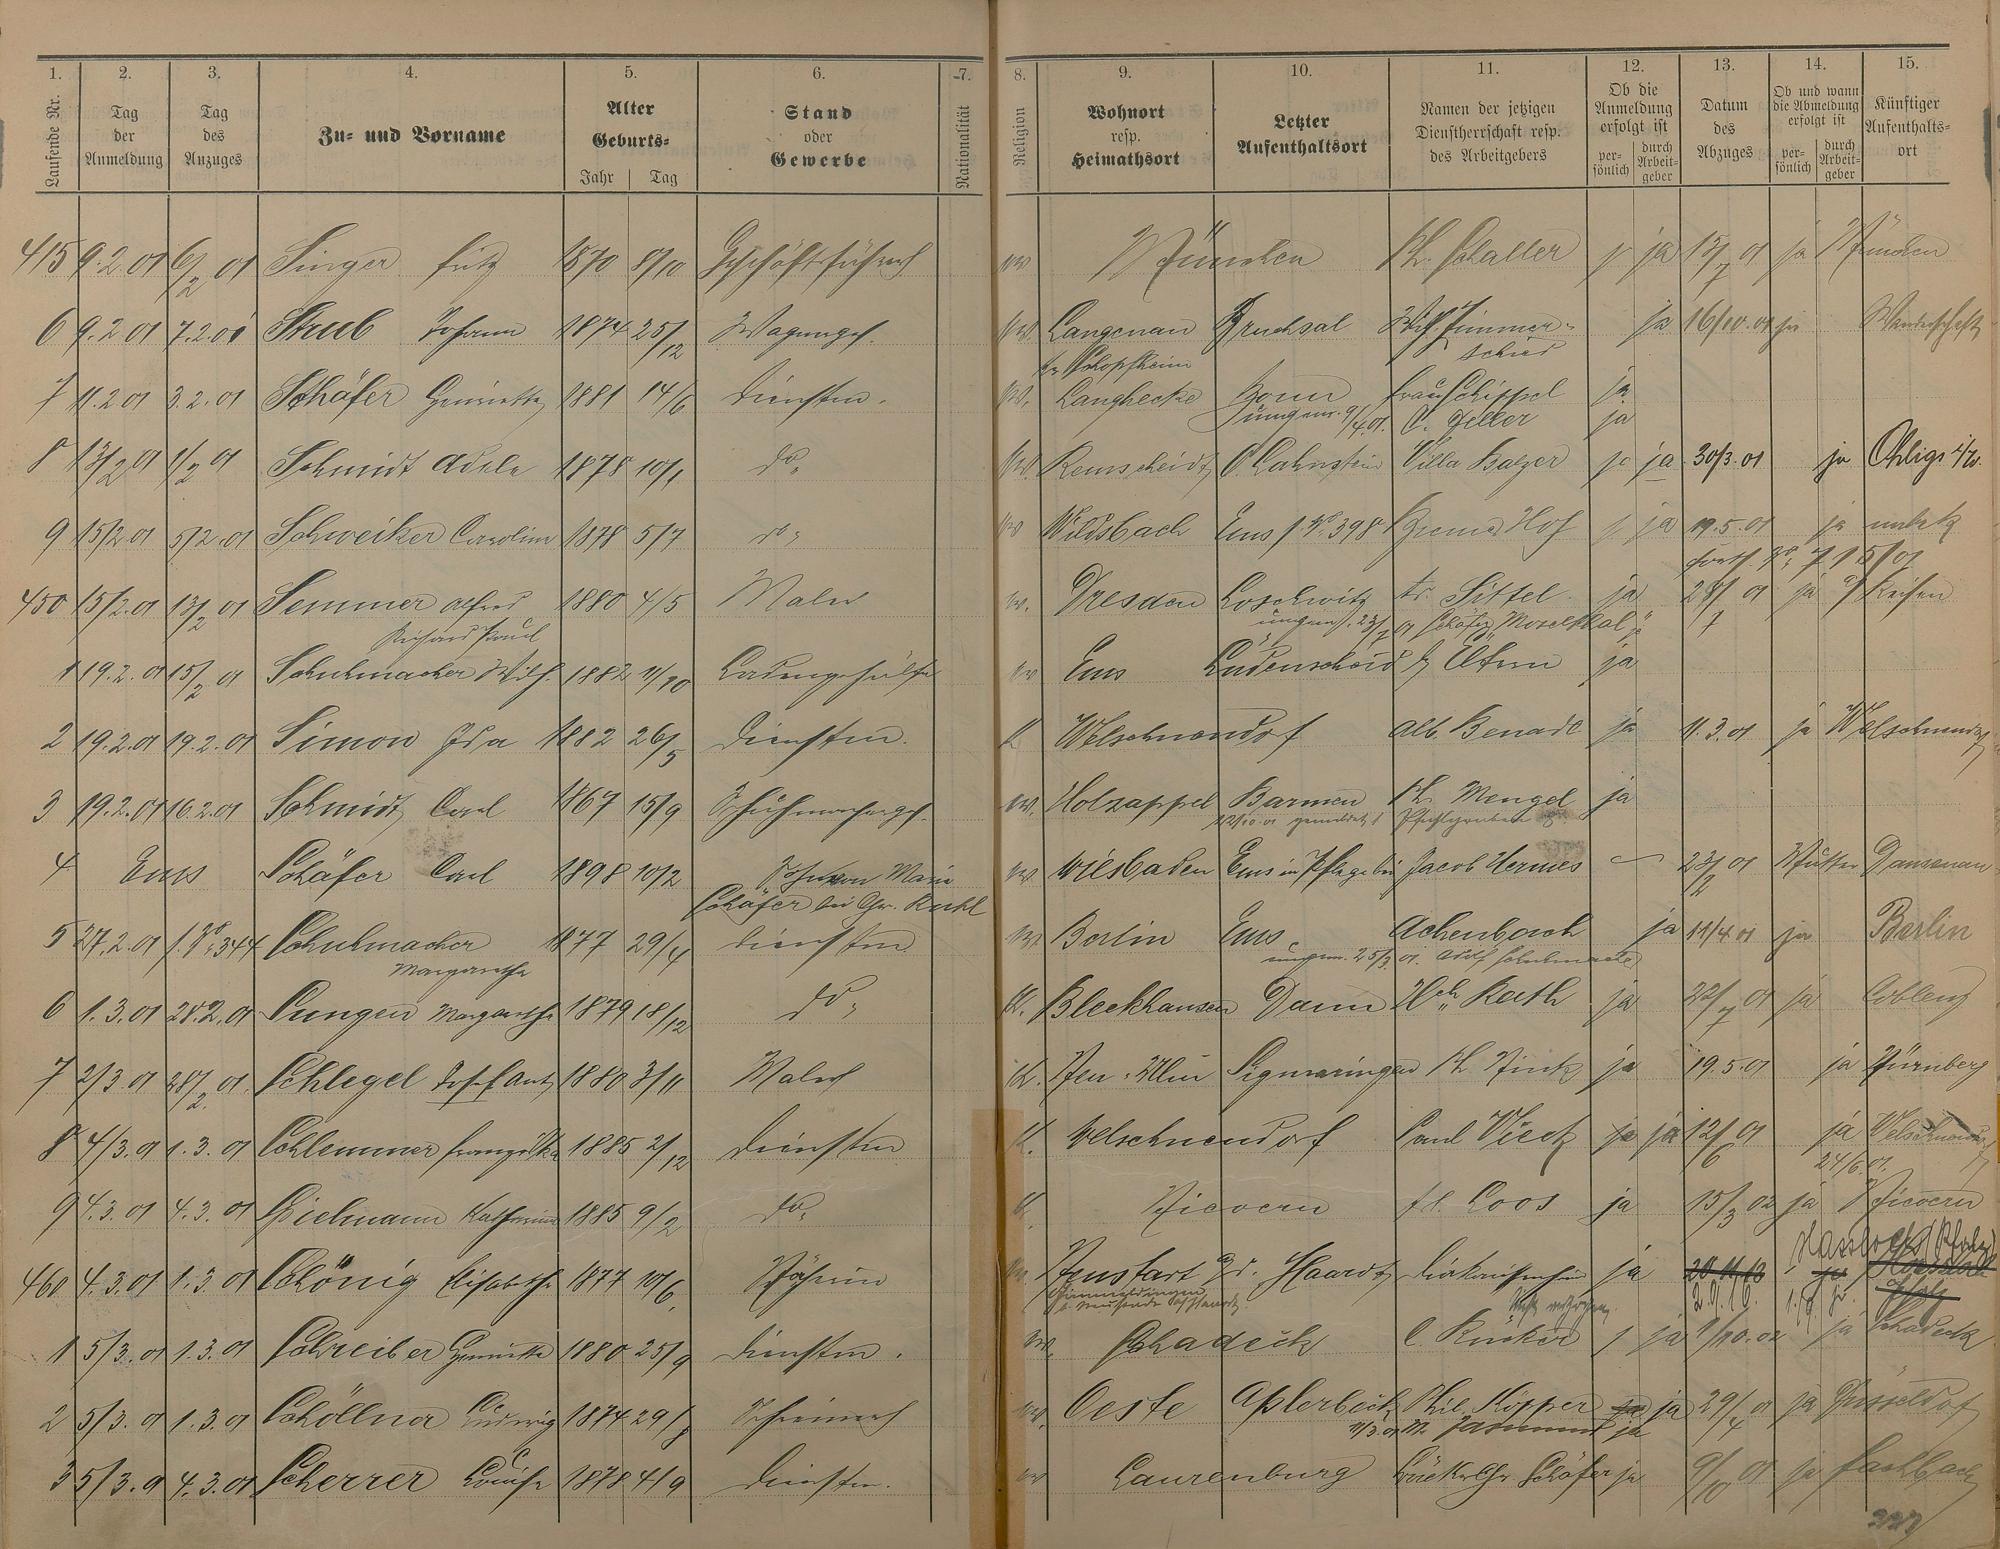 1. 2. 3. 4. 5. 6. 7. 8. 9. 10. 11. 12. 13. 14. 15.
Laufende Nr.
Tag der Anmeldung
Tag des Anzuges
Zu- und Vorname
Alter
Geburts-
Jahr Tag
Stand oder Gewerbe
Nationalität
Religion
Wohnort resp. Heimathsort
Letzter Aufenthaltsort
Namen der jetzigen Dienstherrschaft resp. des Arbeitgebers
Ob die Anmeldung erfolgt ist
per- sönlich
durch Arbeit- geber
Datum des Abzuges
Ob und wann die Abmeldung erfolgt ist
per- sönlich
durch Arbeit- geber
Künftiger Aufenthalts- ort
9.2.01 6/2 01 Singer Fritz 1870 8/10 Geschäftsführer München Schaller ja 15/7 01 ja München
6 9.2.01 7.2.01 Strub Johann 1874 25/12 Wagenges. Langenau Bruchsal Wilh. Zimmer- ja 16/10.01 ja Wanderschaft
Schopfheim schied
7 11.2.01 3.2.01 Schäfer Henriette 1881 14/6 Diensten. Langhecke Bonn Frau Schippel ja
ja
8 13/2 01 1/2 01 Schmidt Adele 1878 10/1 do. Remscheidt O. Lahnstein Villa Balzer ja 30/3.01 ja Ohligs
9 15/2.01 5/2.01 Schweiker Caroline 1878 5/7 do. Wildsbach Ems f. No 398 Hof ja 19.5.01 ja unbek
450 15/2.01 13/2 01 Semmer Alfred 1880 4/5 Maler Dresden Loschwitz Sittel ja 28/7 01 ja a/ Reisen
Richard Paul 23/7 01 Moselthal
1 19.2.01 15/2 01 Schuhmacher Wilh. 1882 11/10 Ladengehülfe Ems Lüdenscheid ja
2 19.2.01 19.2.01 Simon Ida 1882 26/5 Diensten. Welschneudorf Alb. Benade ja 11.3.01 ja Welschneudorf
3 19.2.01 16.2.01 Schmidt Carl 1867 15/9 Schuhmacherges. Holzappel Barmen Ph. Mengel ja
4 Ems Schäfer Carl 1898 10/2 Sohn von Marie Wiesbaden Ems in Pflege bei Jacob Hermes 23/2 01 Mutter Dausenau
Schäfer bei Chr. Ruhl
5 27.2.01 f. No 344 Schuhmacher 1877 29/4 Diensten Berlin Ems Achenbach ja 11/4 01 ja Berlin
Margarethe 25/3 01. Adolf Schuhmacher
6 1.3.01 28.2.01 Sungen Margarethe 1879 18/12 do. Bleckhausen Daun Hch. Rath ja 22/7 01 ja Coblenz
7 2/3.01 28/2.01. Schlegel Josef Ant. 1880 3/11 Maler Neu-Ulm Sigmaringen Ph. Rink ja 19.5.01 ja Nürnberg
8 4/3.01 1.3.01 Schlemmer Franziska 1885 2/12 Diensten Welschneudorf Paul Vieck ja ja 12/6 01 ja Welschneudorf
24/6.01.
9 4.3.01 4.3.01 Spielmann Katharina 1885 9/2 do. Nievern Fr. Loos ja 15/3 02 ja Nievern
460 4.3.01 1.3.01 Schönig Elisabethe 1877 10/6. Näherin Neustart a/d. Haardt Diakonissenheim ja 20.11.13
Hassloch (Pfalz)
2.9.16.
1 5/3.01 1.3.01 Schreiber Henriette 1880 25/9 Diensten. Schadeck C. Rücker ja 1/10.02 ja Schadeck
2 5/3.01 1.3.01 Schöllner Ludwig 1874 29/8 Schreiner Oeste Aplerbeck Phil. Köpper ja ja 29/4 01 ja Düsseldorf
11/3.01 ja
3 5/3.01 4.3.01 Scherrer Louise 1878 4/9 Diensten. Laurenburg Chr. Schäfer ja 9/10 01 ja Fachbach